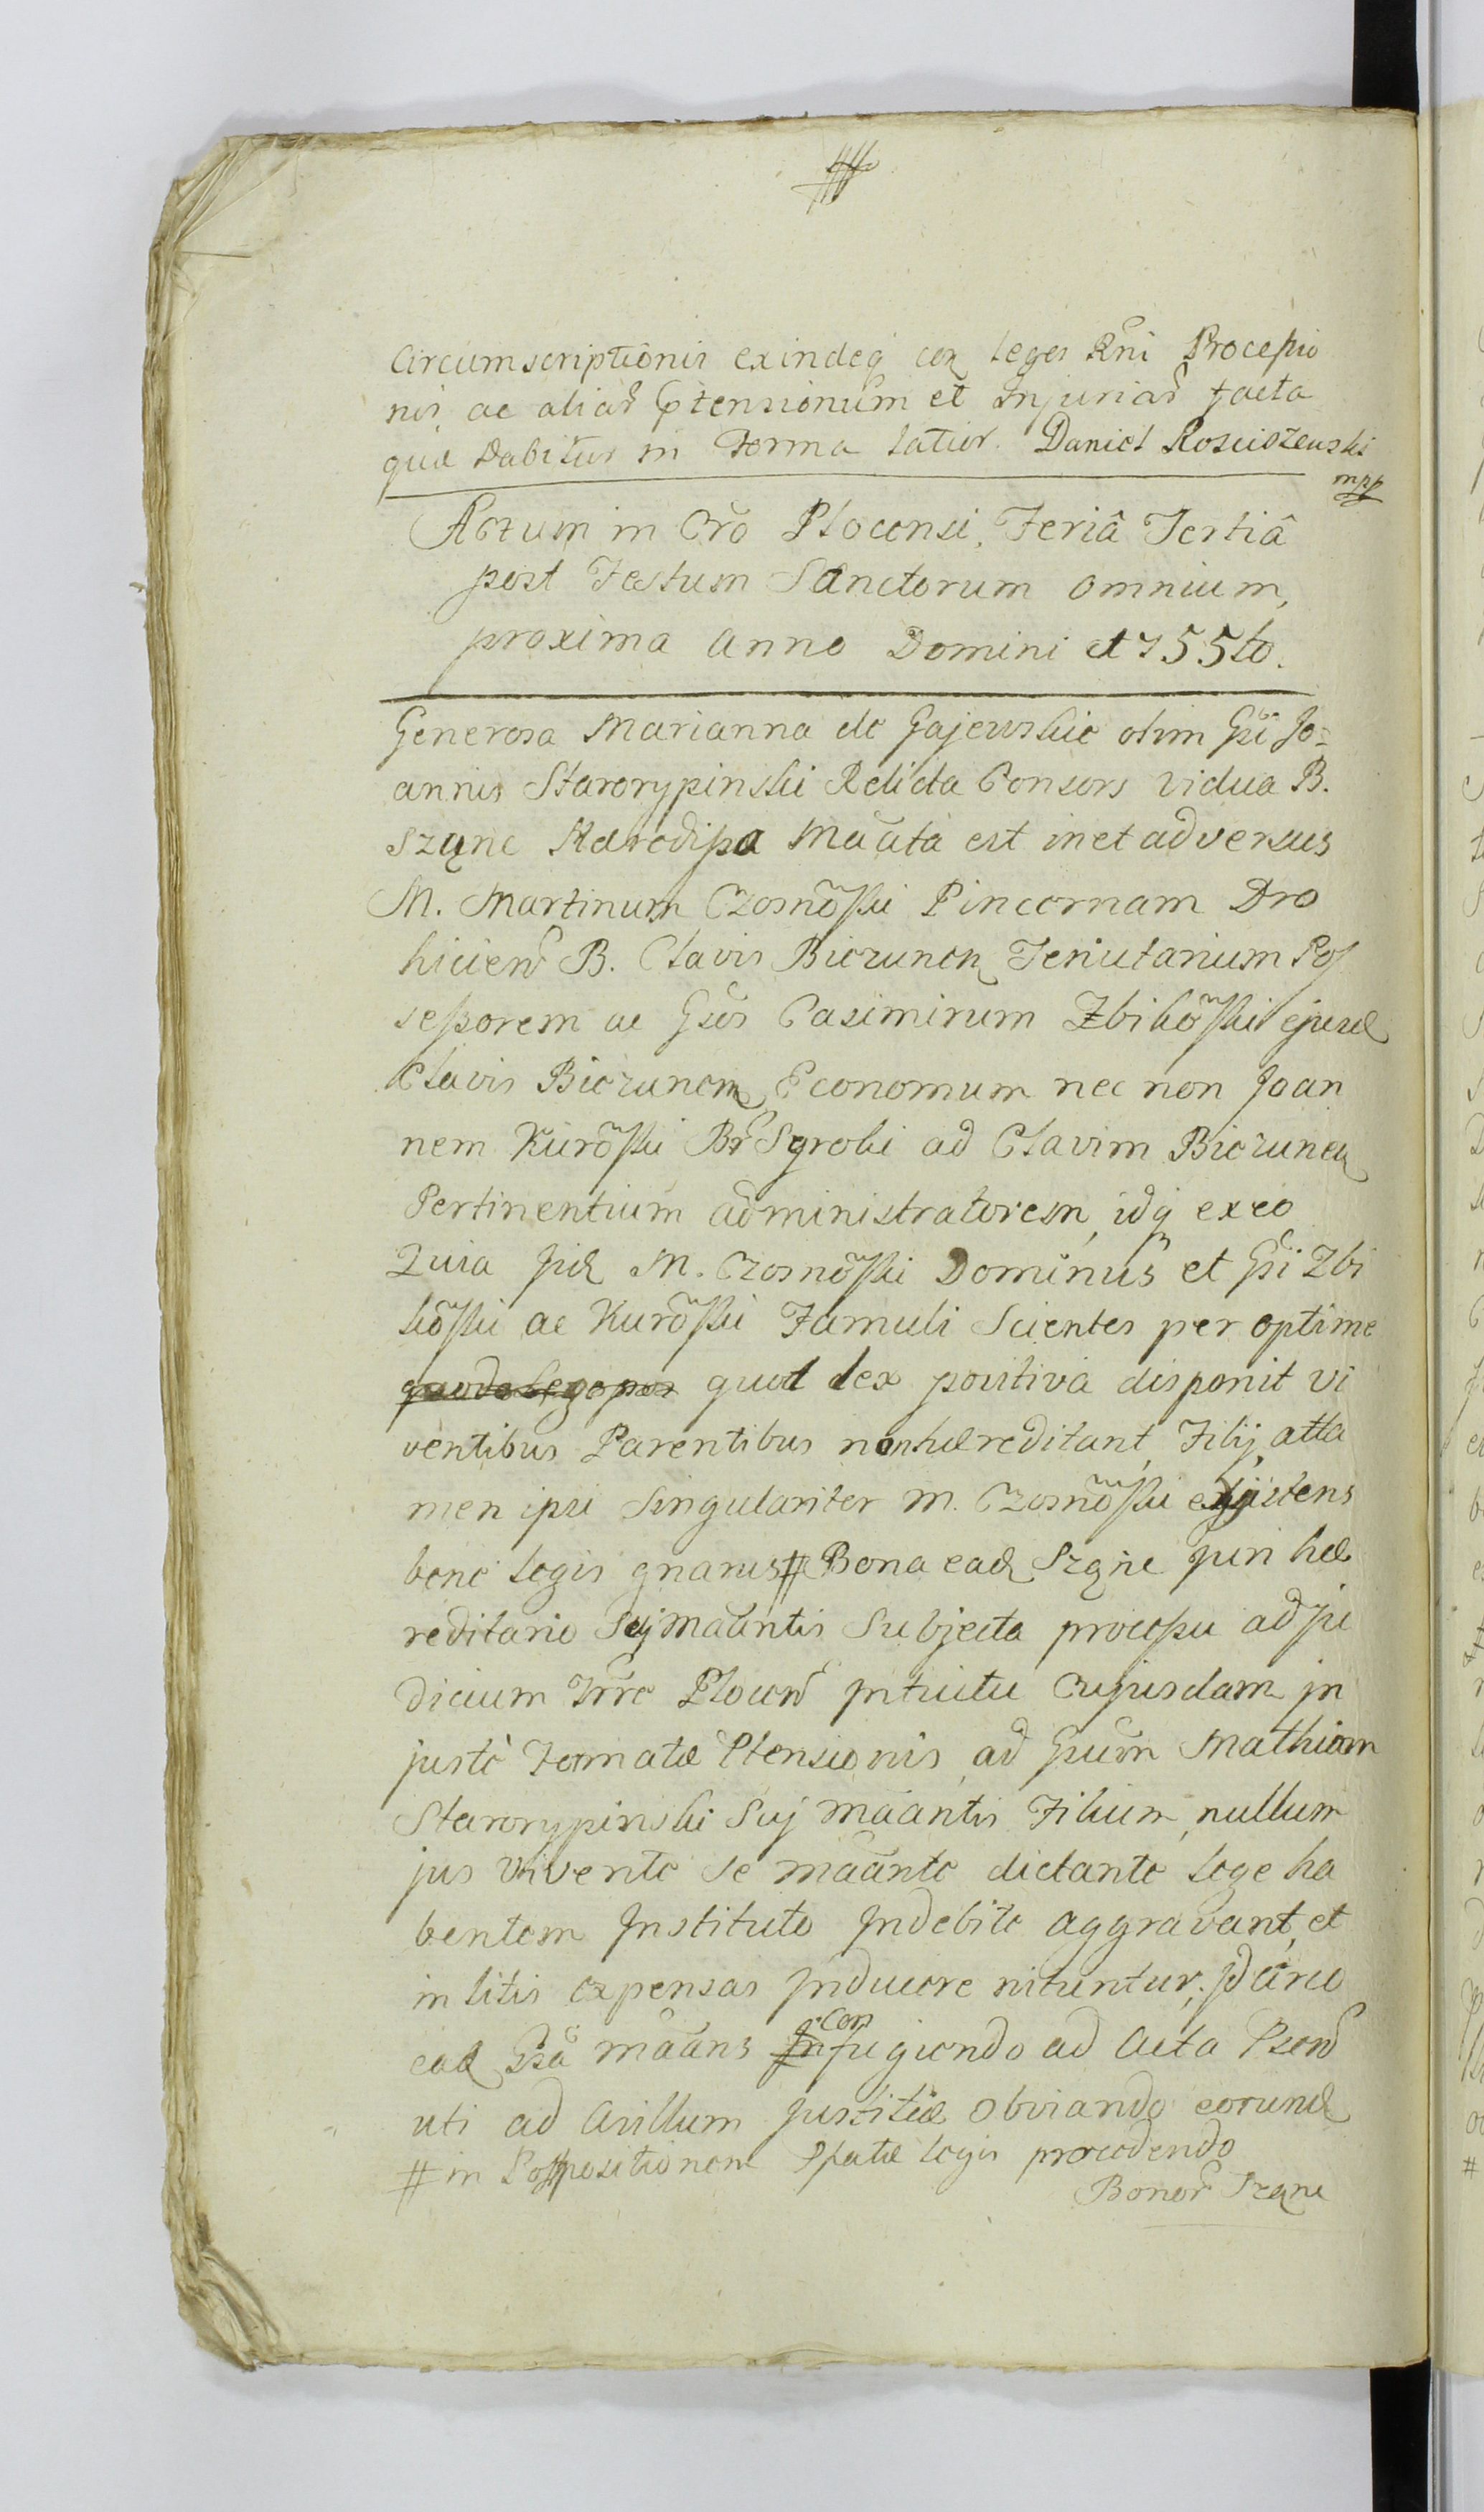 Circumscriptionis exindeq̃ cõ leges Rñi Processio
nis ac aliar̃ Ptensionum et Injuriar̃ facta
quæ Dabitur in Forma latior. Daniel Rosciszewski
mpp
Actum in Cro Plocensi, Feriâ Tertiâ
post Festum Sanctorum omnium,
proxima anno Domini 1755to.
Generosa Marianna de Gajewskie olim Gsi Jo=
annis Starorypinski Relicta Consors Vidua B.
Szane Maãta est in et adversus
M. Martinum Czosnõski Pincernam Dro
hicien̄ B. Clavis Biezunen̄ Tenutarium Pos
sessorem ac Gsos Casimirum Zbikõski ejusd
Clavis Biezunen̄ Economum nec non Joan
nem Kurõski Br̃ Sgrobi ad Clavim Biezunen̄
Pertinentium administratorem, idq̃ ex eo
Quia M. Czosnõski Dominus et Gsi Zbi
kõski ac Kurõski Famuli Scientes per optime
quod lex positiva disponit vi
ventibus Parentibus non hæreditant, Filij, atta
men ipsi Singulariter M. Czosnõski existens
bene legis gnarus # Bona ead Szane juri hæ
reditario Suj Maãntis Subjecta processu ad ju
dicium Trre Plocen̄ Intuitu Cujusdam in
juste Formatæ Ptensionis, ad Gsum Mathiam
Starorypinski Suj Maãntis Filium, nullum
jus vivente se maãnte dictante lege ha
bentem Instituto Indebite aggravant, et
in litis expensas Inducere nituntur, Id circo
ead Gsa maãns Confugiendo ad Acta Psen̄
uti ad Asillum Justitiæ obviando eorund
# in Postpositionem legis procedendo
Bonor̃ Szane